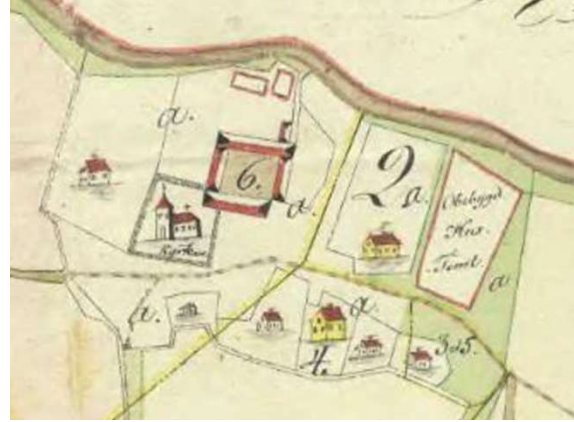 a.
6.
a.
2 a.
Obebygd
Hus
Tomt.
a
Kyrkan
a.
a.
4.
3 d 5.